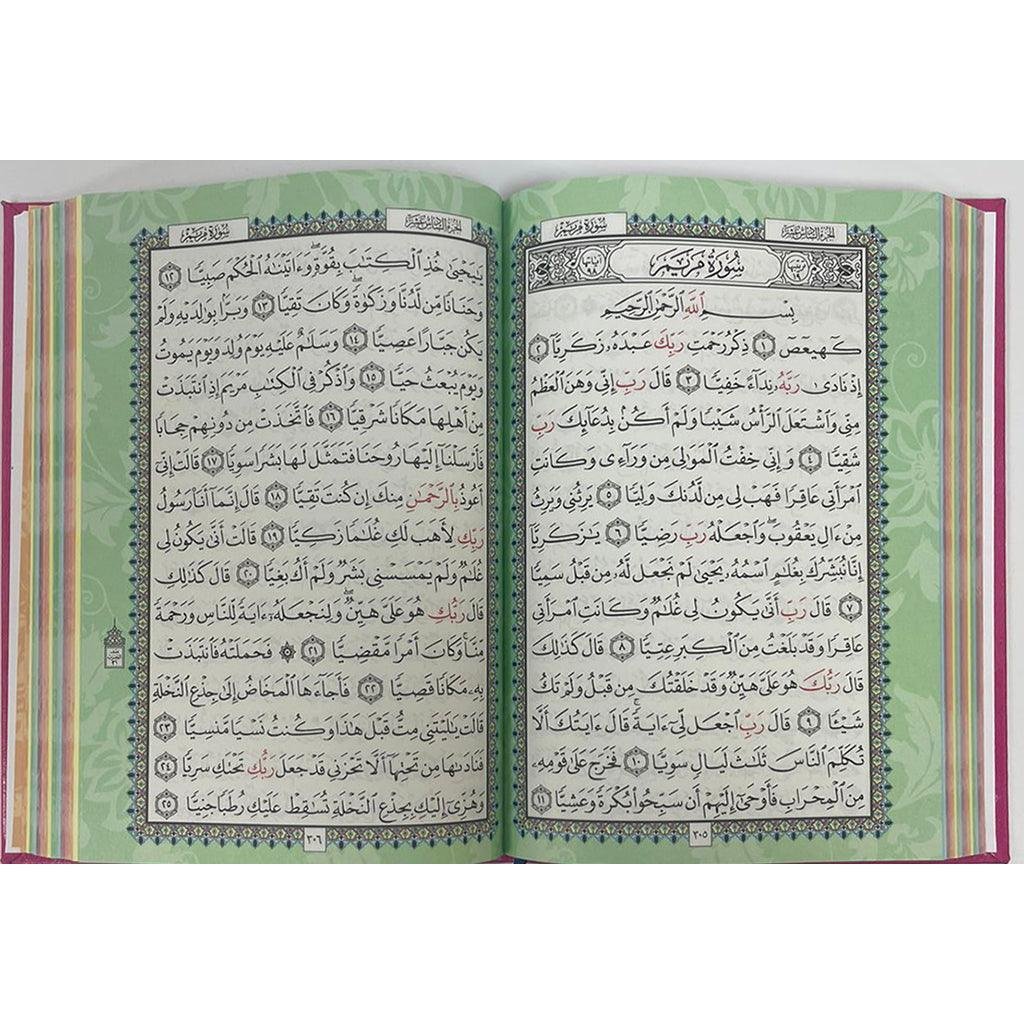 سُورَةُ مَرْيَمَ
الجزء السادس عشر
سُورَةُ مَرْيَمَ
آياتها ٩٨
بِسْمِ ٱللَّهِ ٱلرَّحْمَٰنِ ٱلرَّحِيمِ
كٓهيعٓصٓ ١ ذِكْرُ رَحْمَتِ رَبِّكَ عَبْدَهُۥ زَكَرِيَّآ ٢
إِذْ نَادَىٰ رَبَّهُۥ نِدَآءً خَفِيًّا ٣ قَالَ رَبِّ إِنِّى وَهَنَ ٱلْعَظْمُ
مِنِّى وَٱشْتَعَلَ ٱلرَّأْسُ شَيْبًا وَلَمْ أَكُنۢ بِدُعَآئِكَ رَبِّ
شَقِيًّا ٤ وَإِنِّى خِفْتُ ٱلْمَوَٰلِىَ مِن وَرَآءِى وَكَانَتِ
ٱمْرَأَتِى عَاقِرًا فَهَبْ لِى مِن لَّدُنكَ وَلِيًّا ٥ يَرِثُنِى وَيَرِثُ
مِنْ ءَالِ يَعْقُوبَ ۖ وَٱجْعَلْهُ رَبِّ رَضِيًّا ٦ يَٰزَكَرِيَّآ
إِنَّا نُبَشِّرُكَ بِغُلَٰمٍ ٱسْمُهُۥ يَحْيَىٰ لَمْ نَجْعَل لَّهُۥ مِن قَبْلُ سَمِيًّا
٧ قَالَ رَبِّ أَنَّىٰ يَكُونُ لِى غُلَٰمٌ وَكَانَتِ ٱمْرَأَتِى
عَاقِرًا وَقَدْ بَلَغْتُ مِنَ ٱلْكِبَرِ عِتِيًّا ٨ قَالَ كَذَٰلِكَ
قَالَ رَبُّكَ هُوَ عَلَىَّ هَيِّنٌ وَقَدْ خَلَقْتُكَ مِن قَبْلُ وَلَمْ تَكُ
شَيْـًٔا ٩ قَالَ رَبِّ ٱجْعَل لِّىٓ ءَايَةً ۚ قَالَ ءَايَتُكَ أَلَّا
تُكَلِّمَ ٱلنَّاسَ ثَلَٰثَ لَيَالٍ سَوِيًّا ١٠ فَخَرَجَ عَلَىٰ قَوْمِهِۦ
مِنَ ٱلْمِحْرَابِ فَأَوْحَىٰٓ إِلَيْهِمْ أَن سَبِّحُوا۟ بُكْرَةً وَعَشِيًّا ١١
٣٠٥
الجزء السادس عشر
سُورَةُ مَرْيَمَ
يَٰيَحْيَىٰ خُذِ ٱلْكِتَٰبَ بِقُوَّةٍ ۖ وَءَاتَيْنَٰهُ ٱلْحُكْمَ صَبِيًّا ١٢
وَحَنَانًا مِّن لَّدُنَّا وَزَكَوٰةً ۖ وَكَانَ تَقِيًّا ١٣ وَبَرًّۢا بِوَٰلِدَيْهِ وَلَمْ
يَكُن جَبَّارًا عَصِيًّا ١٤ وَسَلَٰمٌ عَلَيْهِ يَوْمَ وُلِدَ وَيَوْمَ يَمُوتُ
وَيَوْمَ يُبْعَثُ حَيًّا ١٥ وَٱذْكُرْ فِى ٱلْكِتَٰبِ مَرْيَمَ إِذِ ٱنتَبَذَتْ
مِنْ أَهْلِهَا مَكَانًا شَرْقِيًّا ١٦ فَٱتَّخَذَتْ مِن دُونِهِمْ حِجَابًا
فَأَرْسَلْنَآ إِلَيْهَا رُوحَنَا فَتَمَثَّلَ لَهَا بَشَرًا سَوِيًّا ١٧ قَالَتْ إِنِّىٓ
أَعُوذُ بِٱلرَّحْمَٰنِ مِنكَ إِن كُنتَ تَقِيًّا ١٨ قَالَ إِنَّمَآ أَنَا۠ رَسُولُ
رَبِّكِ لِأَهَبَ لَكِ غُلَٰمًا زَكِيًّا ١٩ قَالَتْ أَنَّىٰ يَكُونُ لِى
غُلَٰمٌ وَلَمْ يَمْسَسْنِى بَشَرٌ وَلَمْ أَكُ بَغِيًّا ٢٠ قَالَ كَذَٰلِكِ
قَالَ رَبُّكِ هُوَ عَلَىَّ هَيِّنٌ ۖ وَلِنَجْعَلَهُۥٓ ءَايَةً لِّلنَّاسِ وَرَحْمَةً
مِّنَّا ۚ وَكَانَ أَمْرًا مَّقْضِيًّا ٢١ ۞ فَحَمَلَتْهُ فَٱنتَبَذَتْ
بِهِۦ مَكَانًا قَصِيًّا ٢٢ فَأَجَآءَهَا ٱلْمَخَاضُ إِلَىٰ جِذْعِ ٱلنَّخْلَةِ
قَالَتْ يَٰلَيْتَنِى مِتُّ قَبْلَ هَٰذَا وَكُنتُ نَسْيًا مَّنسِيًّا ٢٣
فَنَادَىٰهَا مِن تَحْتِهَآ أَلَّا تَحْزَنِى قَدْ جَعَلَ رَبُّكِ تَحْتَكِ سَرِيًّا ٢٤
وَهُزِّىٓ إِلَيْكِ بِجِذْعِ ٱلنَّخْلَةِ تُسَٰقِطْ عَلَيْكِ رُطَبًا جَنِيًّا ٢٥
٣٠٦